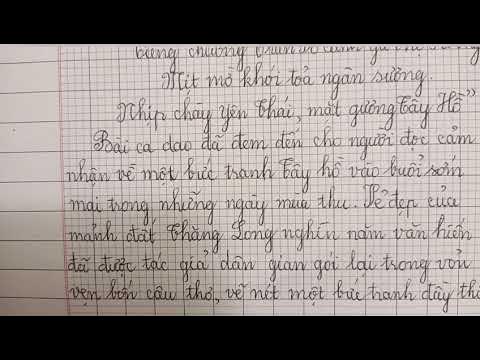 tiếng chuông Trấn Vũ canh gà Thọ Xương
Mịt mờ khói toả ngàn sương
Nhịp chày Yên Thái, mặt gương Tây Hồ"
Bài ca dao đã đem đến cho người đọc cảm
nhận về một bức tranh Tây hồ vào buổi sớm
mai trong những ngày mùa thu. Vẻ đẹp của
mảnh đất Thăng Long nghìn năm văn hiến
đã được tác giả dân gian gói lại trong vỏn
vẹn bốn câu thơ, vẽ nét một bức tranh đầy